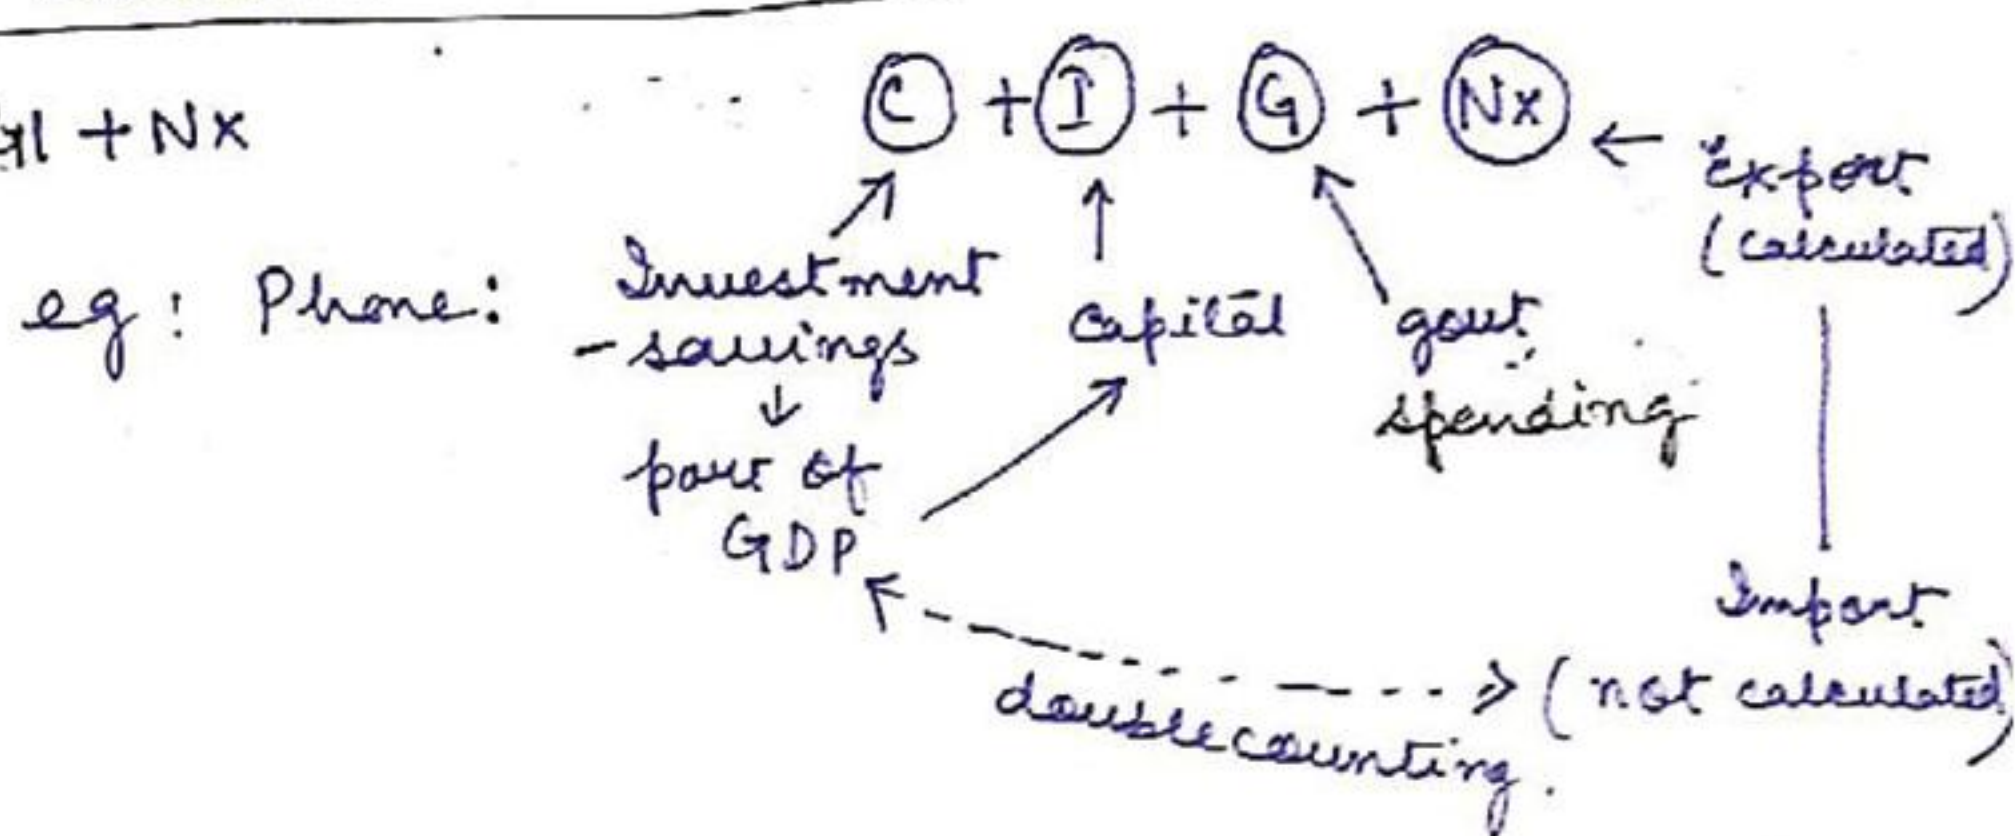 + Nx
C + I + G + Nx ←
export
(calculated)
eg: Phone:
Investment
- savings
↓
part of
GDP
capital
govt
spending
Import
(not calculated)
double counting.